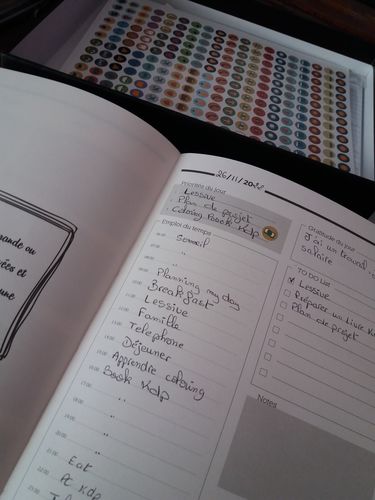 26/11/2022
Priorités du jour
Lessive
Plan de projet
Coloring Book Kdp
Gratitude du jour
J'ai un travail
salaire
Emploi du temps
Sommeil
"
"
Planning my day
Breakfast
Lessive
Famille
Telephone
Déjeuner
Apprendre coloring
Book Kdp
"
"
"
Eat
PC Kdp
TO DO List
Lessive
Préparer un livre
Plan de projet
Notes
ande ou
ées et
une